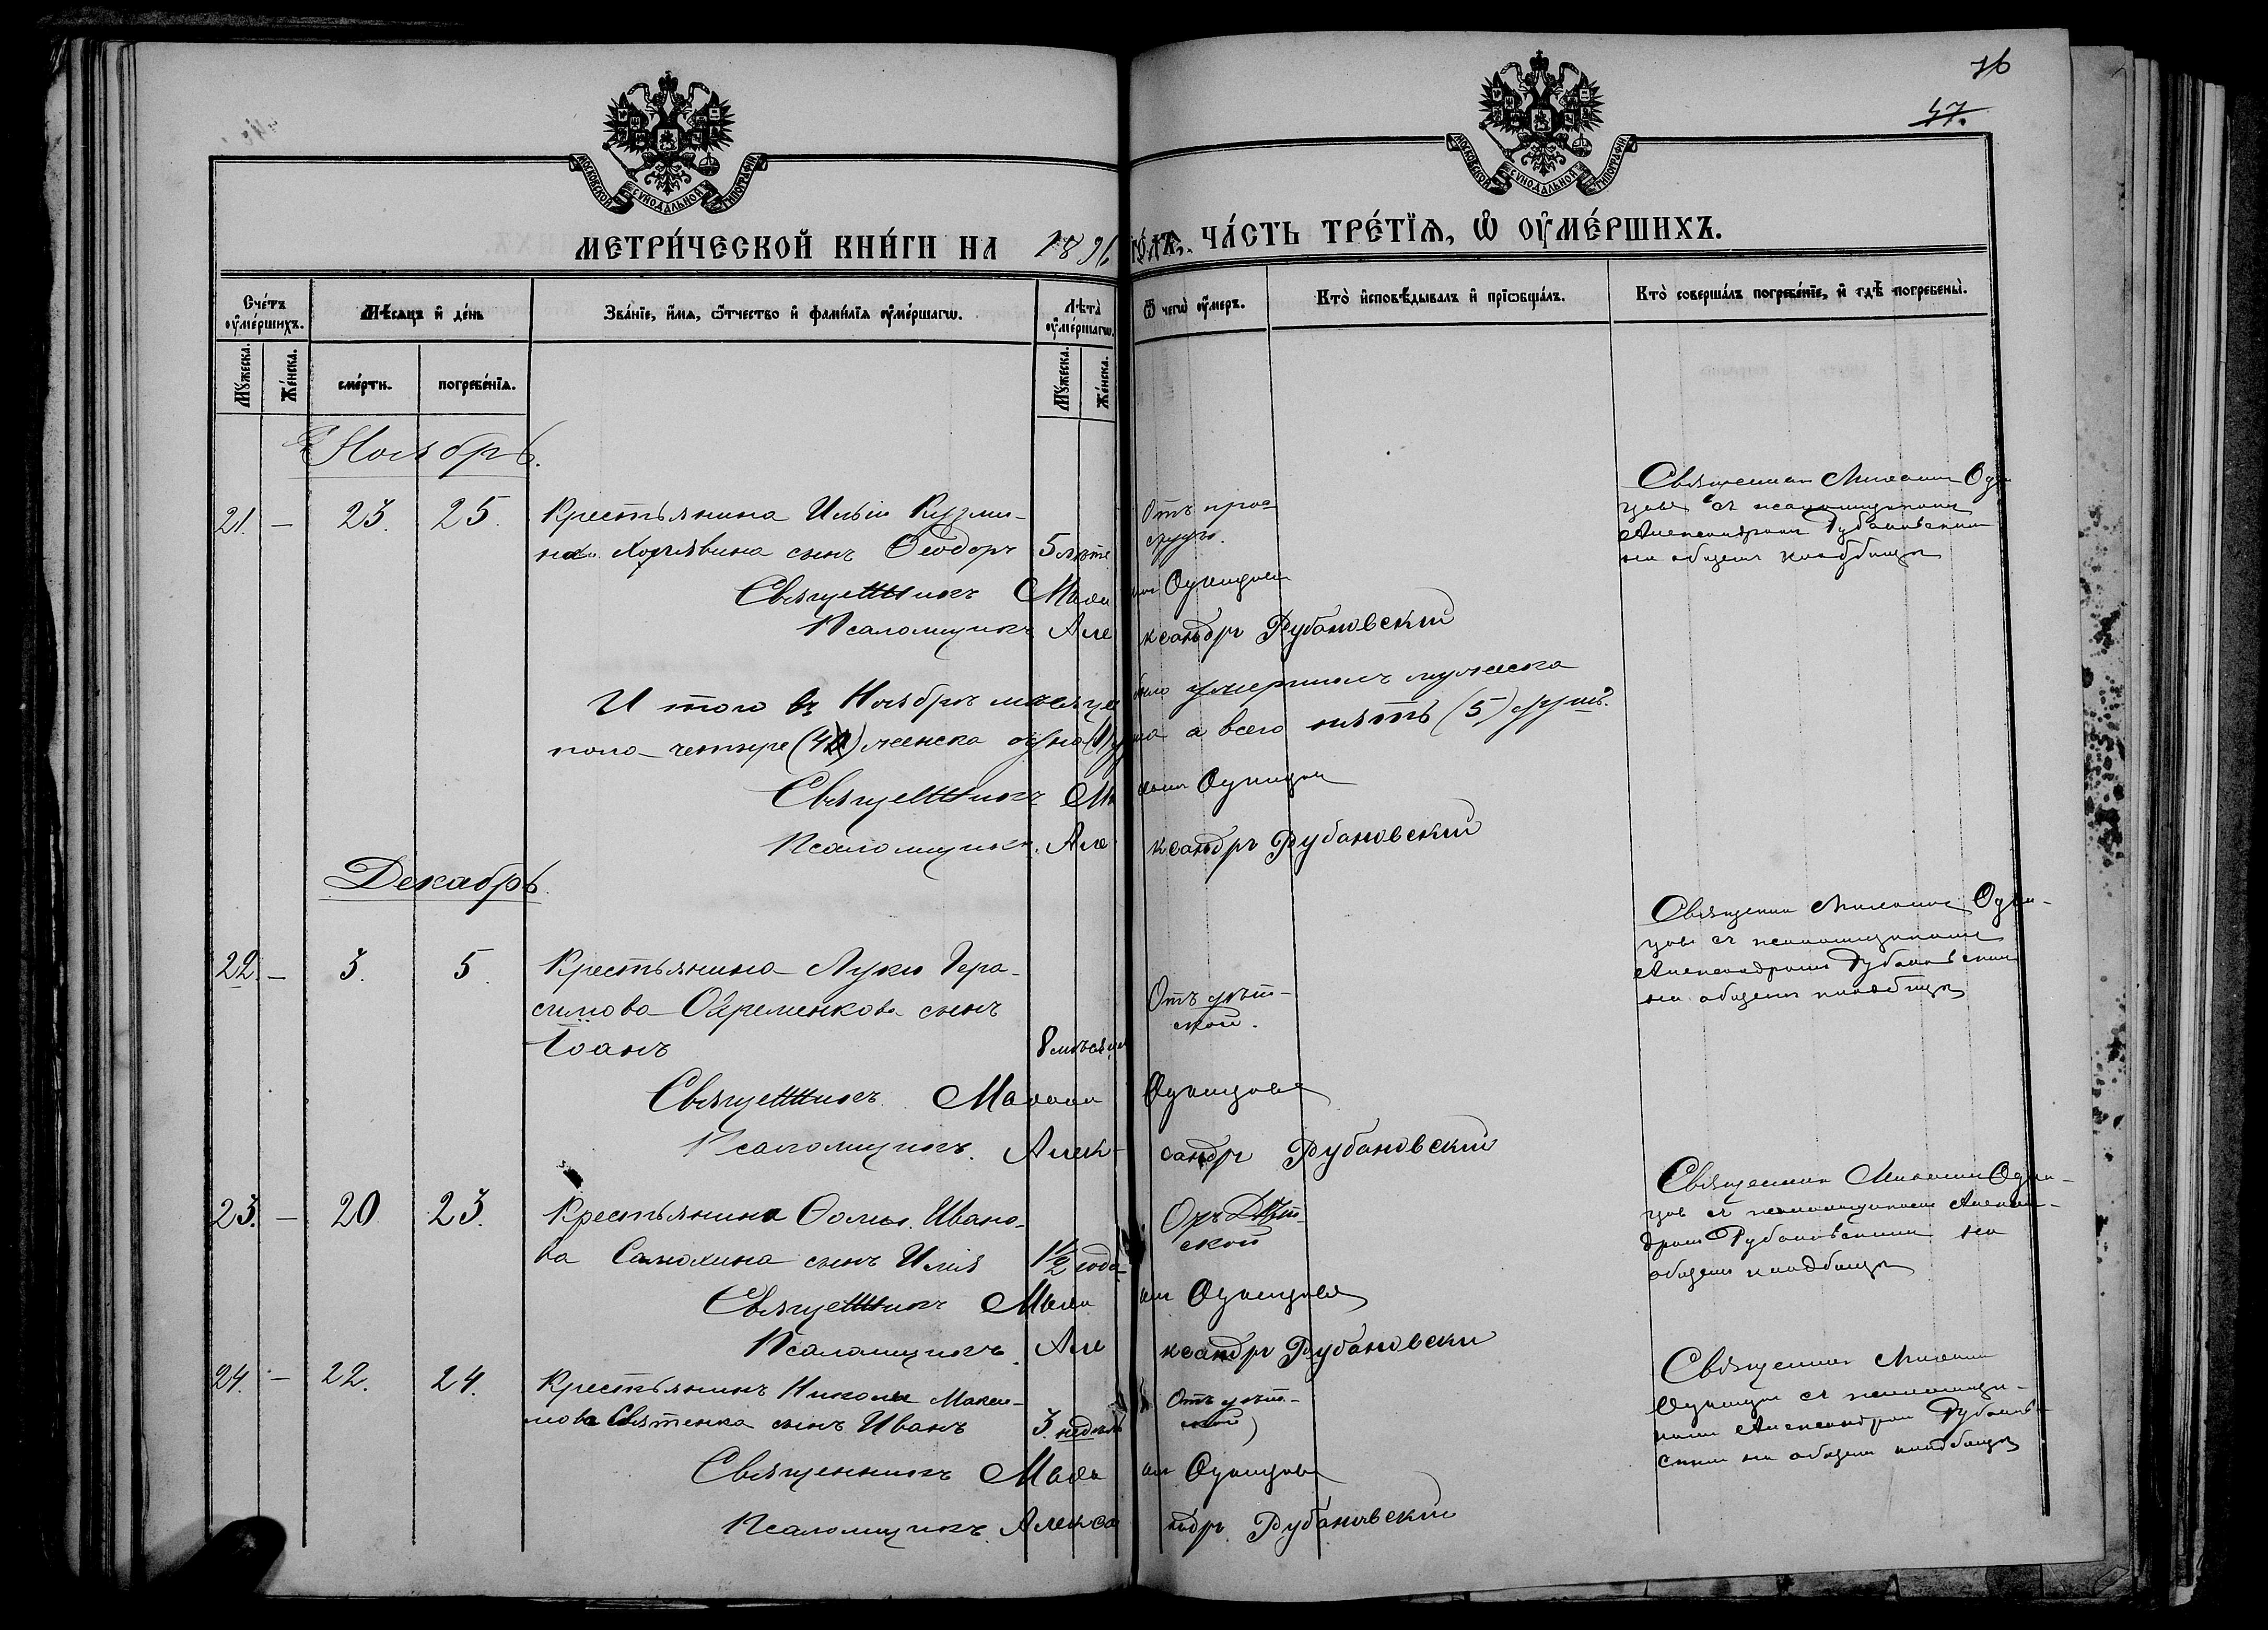 76
47.
МОСКОВСКОЙ СѴНОДАЛЬНОЙ ТИПОГРАФІИ
МОСКОВСКОЙ СѴНОДАЛЬНОЙ ТИПОГРАФІИ
МЕТРИ́ЧЕСКОЙ КНИ́ГИ НА 1896 го́дъ, ЧА́СТЬ ТРЕ́ТЇѦ, Ѡ ОУМЕ́РШИХЪ.
Сче́тъ оумершихъ.
Мѣсяцъ и де́нь
Зва́нїе, и́мѧ, ѻтчество и фами́лїѧ оуме́ршагѡ.
Лѣта̀ оуме́ршагѡ.
Ѿ чегѡ оумеръ.
Кто̀ исповѣдывалъ и прїѡбща́лъ.
Кто̀ соверша́лъ погребе́нїе, и гдѣ погребены̀.
Мꙋжеска.
Же́нска.
сме́рти.
погребе́нїѧ.
Мꙋжеска.
Же́нска.
Ноябрь.
21. – 23. 25. Крестьянина Ильи Кузми-
на сынъ Ѳеодоръ 5 лѣтъ
Отъ прос-
Священник Один-
цов съ псаломщиком
Александром Рубановским
на общем кладбище
Священникъ Одинцовъ
Псаломщикъ Александръ Рубановский
И того въ Ноябрѣ месяце было умершихъ мужеска
пола – четыре (4) женска одна (1) а всего пять (5) душъ.
Священникъ Одинцов
Псаломщикъ. Александръ Рубановский
Декабрь.
22. – 3. 5. Крестьянина Луки Гера-
симова Охременкова сынъ
Іоанъ 8 мѣсяц
Отъ дѣт-
ской.
Священник Один-
цов съ псаломщиком
Александром Рубановским
на общем кладбище
Священникъ Одинцовъ
Псаломщикъ. Александръ Рубановский
23. – 20 23. Крестьянина Ѳомы Ивано-
ва Самохина сынъ Илія 1½ года
Отъ Дѣт-
ской
Священник Один-
цов съ псаломщиком Алексан-
дром Рубановским на
общем кладбище
Священникъ Одинцовъ
Псаломщикъ Александръ Рубановский
24. – 22. 24. Крестьянинъ Николы Макси-
мова Святенка сынъ Иванъ 3. недѣль
Отъ дѣт-
ской
Священник
Одинцов съ псаломщи-
ком Александром Рубанов-
ским на общем кладбище
Священникъ Одинцовъ
Псаломщикъ. Александръ Рубановский